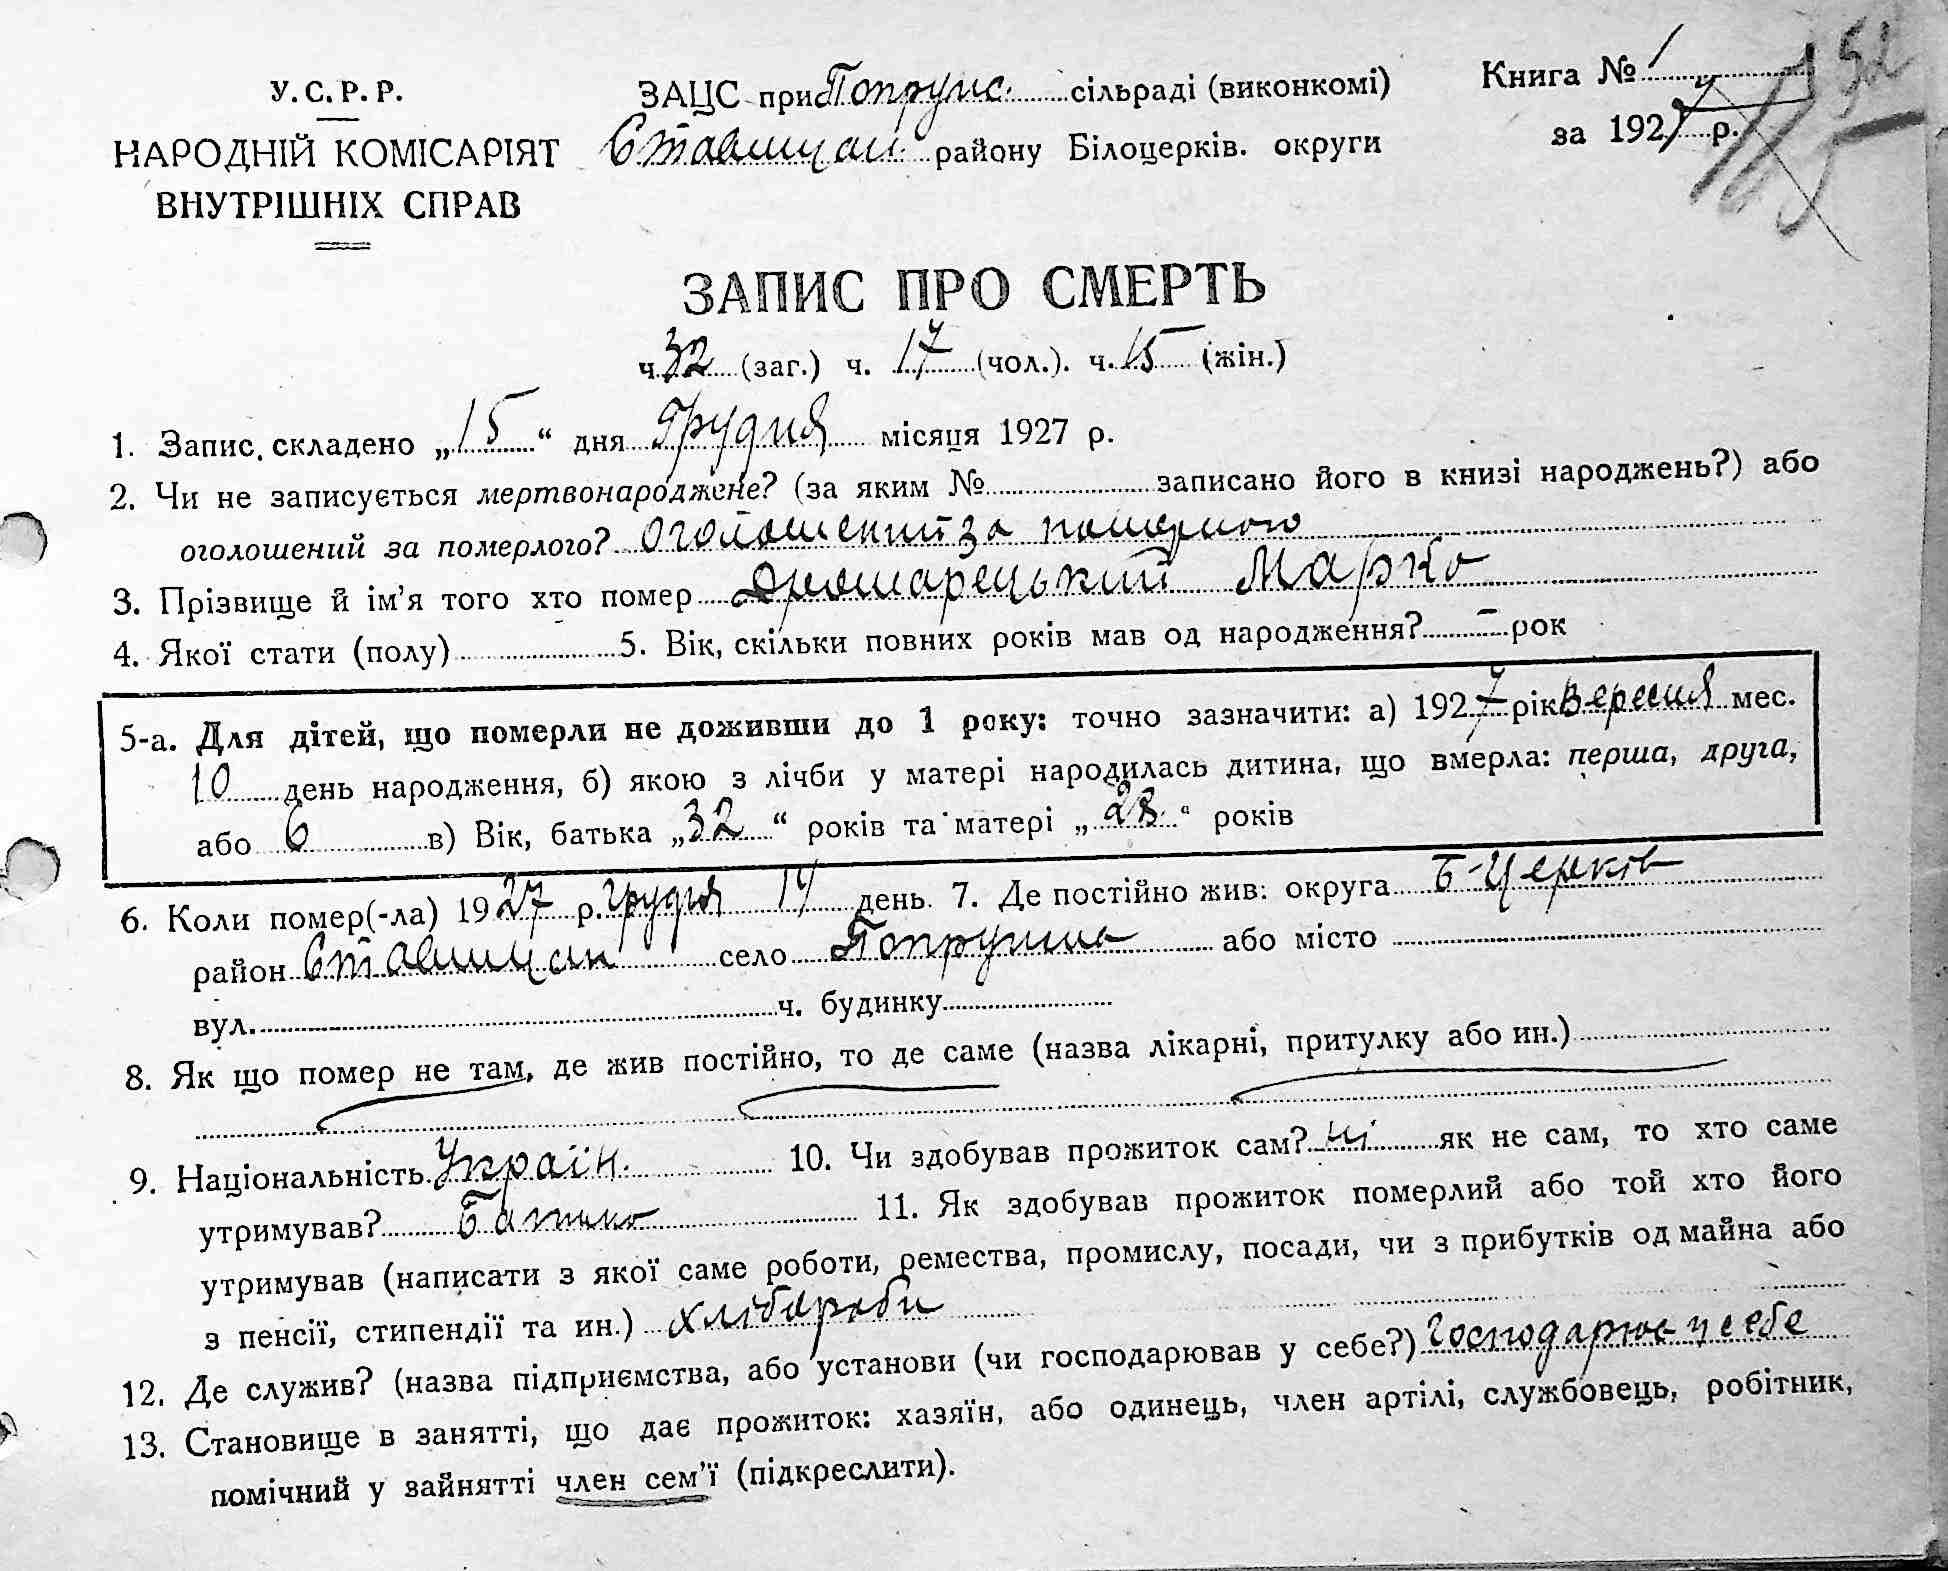 У.С.Р.Р.
НАРОДНІЙ КОМІСАРІЯТ
ВНУТРІШНІХ СПРАВ
ЗАЦС при Попруж. сільраді (виконкомі)
Ставищан. району Білоцерків. округи
Книга № 1
за 1927 р.
52
ЗАПИС ПРО СМЕРТЬ
ч. 32 (заг.) ч. 17 (чол.). ч. 15 (жін.)
1. Запис. складено „15“ дня Грудня місяця 1927 р.
2. Чи не записується мертвонароджене? (за яким № записано його в книзі народжень?) або
оголошений за померлого? оголошений за померлого
3. Прізвище й ім’я того хто помер Марко
4. Якої стати (полу) 5. Вік, скільки повних років мав од народження? – рок
5-а. Для дітей, що померли не доживши до 1 року: точно зазначити: а) 1927 рік Вересня мес.
10 день народження, б) якою з лічби у матері народилась дитина, що вмерла: перша, друга,
або 6 в) Вік, батька „32“ років та матері „28“ років
6. Коли помер(-ла) 1927 р. грудня 14 день. 7. Де постійно жив: округа Б-Церків
район Ставищан село Попружна або місто
вул. ч. будинку
8. Як що помер не там, де жив постійно, то де саме (назва лікарні, притулку або ин.)
9. Національність Україн. 10. Чи здобував прожиток сам? ні як не сам, то хто саме
утримував? Батько 11. Як здобував прожиток померлий або той хто його
утримував (написати з якої саме роботи, ремества, промислу, посади, чи з прибутків од майна або
з пенсії, стипендії та ин.) хлібороби
12. Де служив? (назва підприємства, або установи (чи господарював у себе?) Господарює у себе
13. Становище в занятті, що дає прожиток: хазяїн, або одинець, член артілі, службовець, робітник,
помічний у зайнятті член сем’ї (підкреслити).